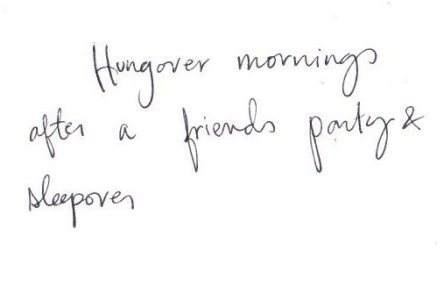 Hungover mornings
after a friends party &
sleepover